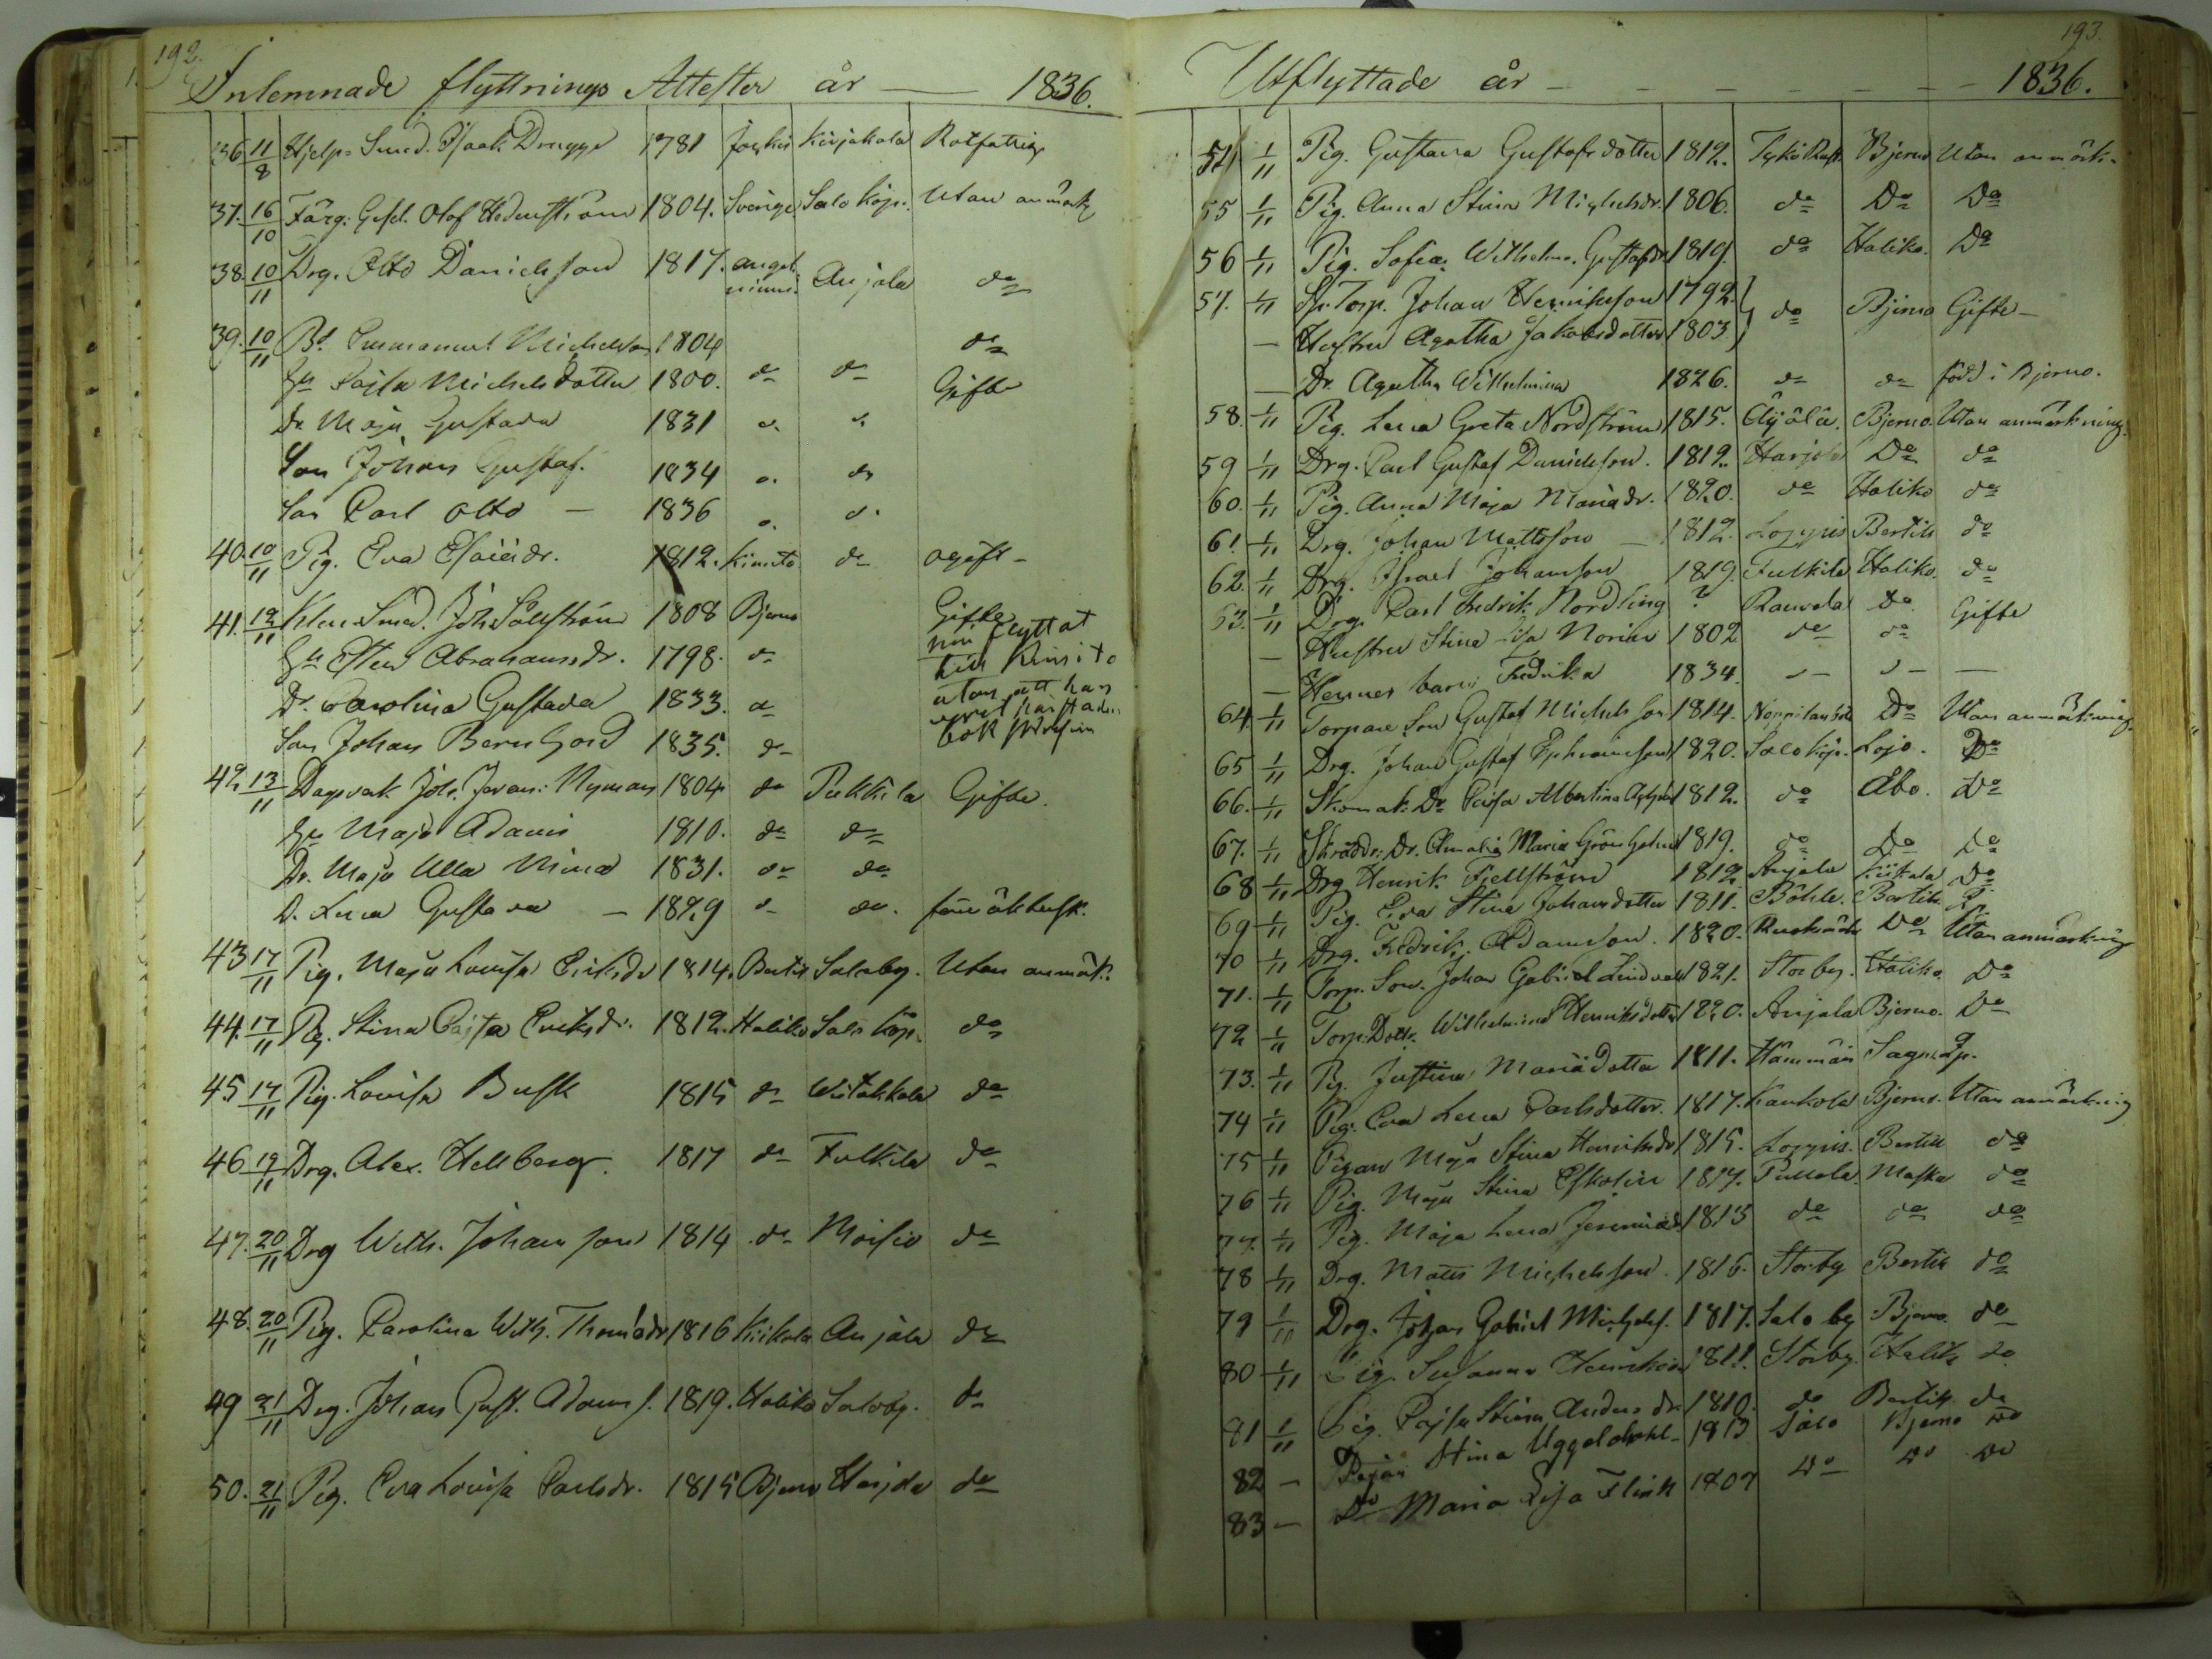 192.
Inlemnade flyttnings Attester år — 1836.
36 11/8 Hjelp. Smed. Isaak Drugge 1781 Jockis Kirjakala Rotfattig
37. 16/10 Färg. Gesel. Olof Hedenström 1804. Sverige Salo köp. Utan anmärk
38. 10/11 Drg. Otto Danielsson 1817. angel- niemi. Anjala do
39. 10/11 Bd. Emmanuel Michelsson 1804 do
Hu Cajsa Michelsdotter 1800. do do Gifte
Dr. Maja Gustava 1831 d. d.
Son Johan Gustaf. 1834 d. do
Son Carl Otto — 1836 d. d.
40. 10/11 Pig. Eva Esaiædr. 1812. Kimito do ogift –
41. 12/11 Klen Smed. Joh. Sällström 1808 Bjerno Gifte
Hu Stina Abrahamsdr. 1798. do nu flyttat till Kimito
Dr. Carolina Gustava 1833. do utan att han
Son Johan Bernhard 1835. do
42. 13/11 Dagsverk. Joh. Nyman 1804 do Pukkila Gifte.
Hu Maja Adams 1810. do do
Dr. Maja Ulla Mina 1831. do do
D. Lena Gustava — 1829 d. do.
43 17/11 Pig. Maja Lovisa Eriksdr 1814. Bertil Saloby. Utan anmärk.
44. 17/11 Pig. Stina Cajsa Eriksdr. 1812. Haliko Salo köp. do
45 17/11 Pig. Lovisa Busk 1815 do Wiitakkala do
46 19/11 Drg. Alex. Hellberg. 1817 do Fulkila do
47. 20/11 Drg Wilh. Johansson 1814 do Moisio do
48. 20/11 Pig. Carolina Wilh. Thomædr 1816 Kiikala Anjala do
49 21/11 Drg. Johan Gust. Adams s. 1819. Haliko Saloby. do
50. 21/11 Pig. Eva Lovisa Carlsdr. 1815 Bjerno Harjola do
193.
Utflyttade år — — — — — — 1836.
54 1/11 Pig. Gustava Gustafsdotter 1812. Tykö Bjerno Utan anmärk.
55 1/11 Pig. Anna Stina Michelsdr. 1806. do Do Do
56 1/11 Pig. Sofia Wilhelmi. Gustafsdr 1819. do Haliko. Do
57. 1/11 Torp. Johan Henriksson 1792. do Bjerno Gifte –
— Hustru Agatha Jakobsdotter 1803.
— Dr. Agatha Wilhelmina 1826. do do född i Bjerno.
58. 1/11 Pig. Lena Greta Nordström 1815. Äijälä. Bjerno. Utan anmärkning.
59 1/11 Drg. Carl Gustaf Danielsson. 1812. Harjola Do do
60. 1/11 Pig. Anna Maja Mariædr. 1820. do Haliko do
61. 1/11 Drg. Johan Mattsson — 1812. Loppis Bertils do
62. 1/11 Drg. Israel Johansson 1819. Fulkila Haliko. do
63. 1/11 Drg. Carl Fredrik Nordling ? Rauvola Do. Gifte
— Hustru Stina Lisa Norén 1802 do do
— Hennes barn Fredrika 1834. d – d – —
64. 1/11 Torpare Son Gustaf Michels son. 1814. Do Utan anmärkning.
65 1/11 Drg. Johan Gustaf Ephraimsson 1820. Salo köp. Lojo. Do
66. 1/11 Skomak. Dr. Cajsa Albertina 1812. do Åbo. Do
67. 1/11 Skräddr. Dr. Amalia Maria Grönholm 1819. do Do Do
68 1/11 Drg Henrik Fjellström 1812 Anjala Kiikala Do
69 1/11 Pig. Eva Stina Johansdotter 1811. Böhle. Bertils
70 1/11 Drg. Fredrik Adamsson. 1820. Do Utan anmärkning
71. 1/11 Torp. Son. Johan Gabriel Lindvall 1821. Storby. Haliko. Do
72 1/11 Torp. Dottr. Wilhelmina Henriksdotter 1820. Anjala Bjerno. Do
73. 1/11 Pig. Justina Mariædotter 1811. Hämmäis Sagu
74 1/11 Pig. Eva Lena Carlsdotter. 1817. Kaukola Bjerno. Utan anmärkning
75 1/11 Pigan Maja Stina Henriksdr 1815. Loppis. Bertils do
76 1/11 Pig. Maja Stina Eskolin 1817. Pullola. Masku do
77. 1/11 Pig. Maja Lena Jeremiæd. 1813 do do do
78 1/11 Drg. Matts Michelsson. 1816. Storby Bertils do
79 1/11 Drg. Johan Gabriel Michels. 1817. Salo by Bjerno. do
80 1/11 Pig. Susanna Henriksdr 1811. Storby. Haliko do
81 1/11 Pig. Cajsa Stina Anders dr. 1810. do Bertils do
82 — Pigan Stina Uggeldahl – 1813 Salo Bjerno Do
83 — Do Maria Lisa Flink 1807 Do Do Do